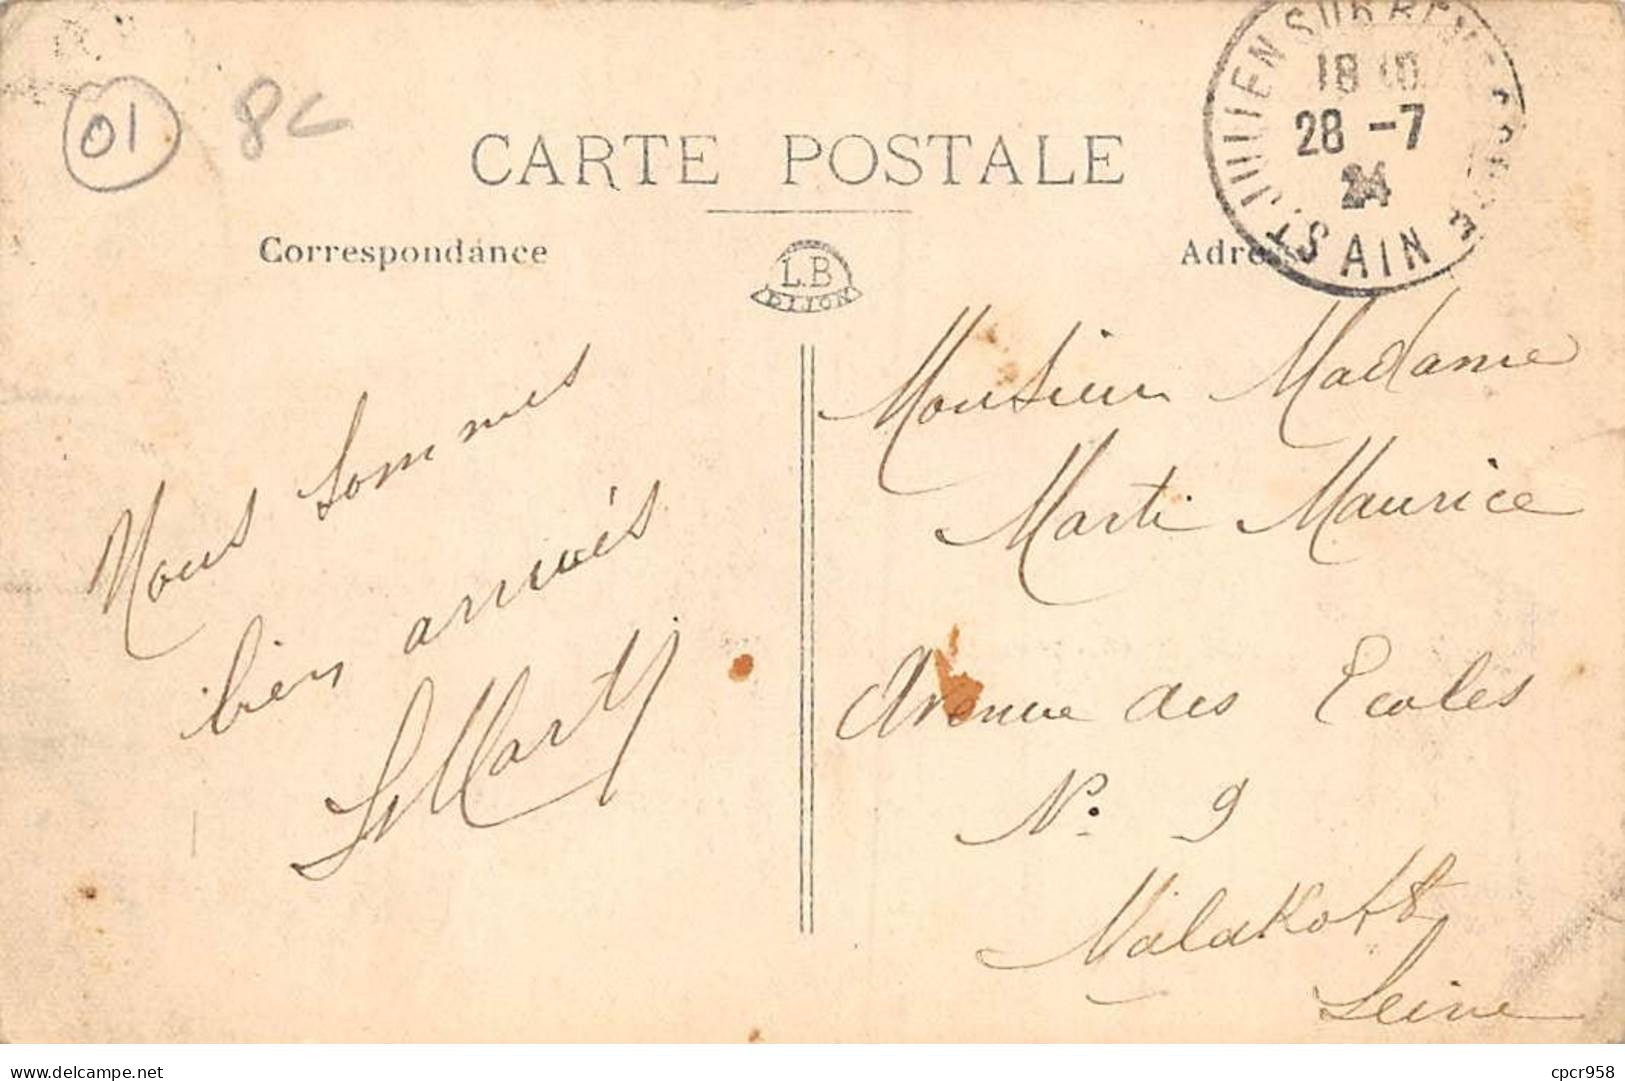 01 8c
CARTE POSTALE
ST JULIEN SUR REYSSOUZE
18 10
28 -7
24
AIN
Correspondance
L.B
DIJON
Nous sommes
bien arrivés
Marty
Monsieur Madame
Marti Maurice
Avenue des Ecoles
N° 9
Malakoff
Seine
delcampe.net
cpcr958